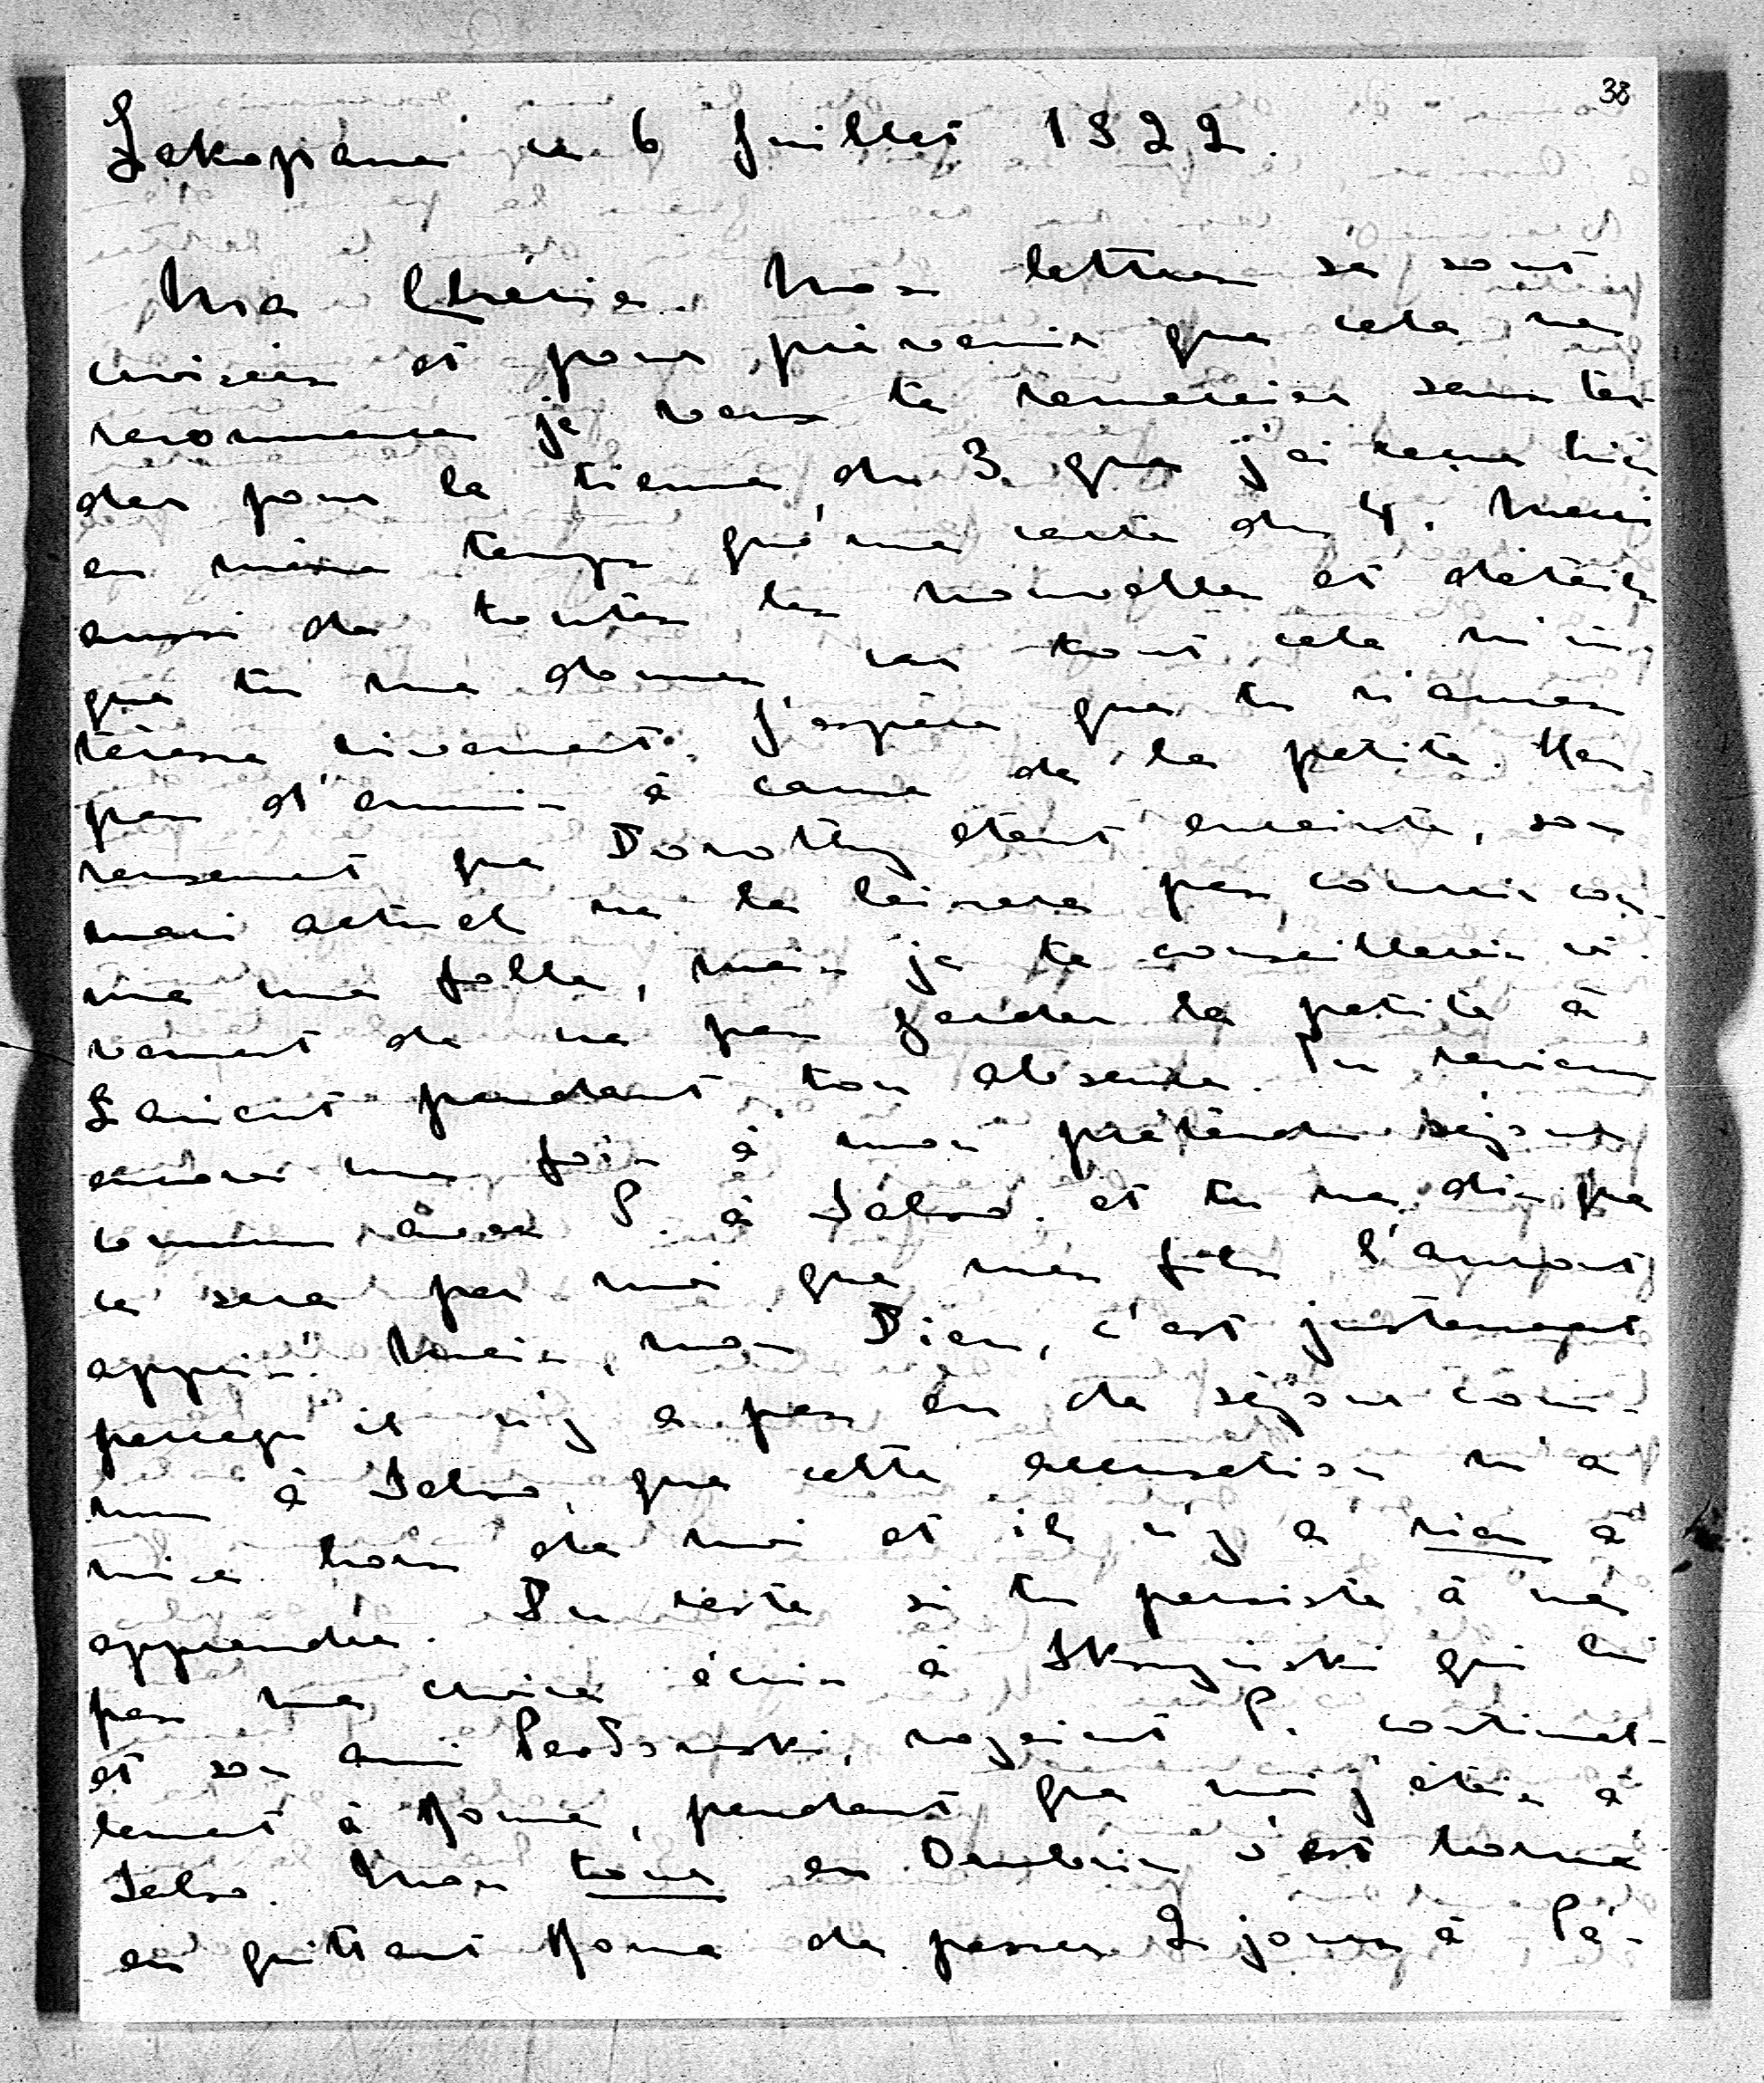 38
Zakopane ce 6 Juillet 1922.
Ma Chérie. Nos lettres se sont
croisées et pour prévenir que cela ne
recommence je veux te remercier sans tar-
der pour la tienne du 3 que j'ai reçue hier
en même temps qu'une carte du 4. Merci
aussi de toutes les nouvelles et détails
que tu me donnes, car tout cela m'in-
téresse vivement. J'espère que tu n'auras
pas d'ennuis à cause de la petite. Heu-
reusement que Dorothy étant enceinte, son
mari actuel ne la laissera pas courir com-
me une folle, mais je te conseillerais vi-
vement de ne pas garder la petite à
Łańcut pendant ton absence. Tu reviens
encore une fois à mon prétendu séjour
commun avec P. à Salso. et tu me dis que
ce sera par moi que mes fils l'auront
appris. Mais, mon Dieu, c'est justement
parcequ'il n'y a pas eu de séjour com-
mun à Salso, que cette accusation m'a
mise hors de moi et il n'y a rien à
apprendre. Du reste si tu persiste à ne
pas me croire écris à Skrzyński qui lui
et son ami Perłowski, voyaient P. continuel-
lement à Rome, pendant que moi j'étais à
Salso. Mon tour en Ombrie s'est borné
en quittant Rome de passer 2 jours à Pé-